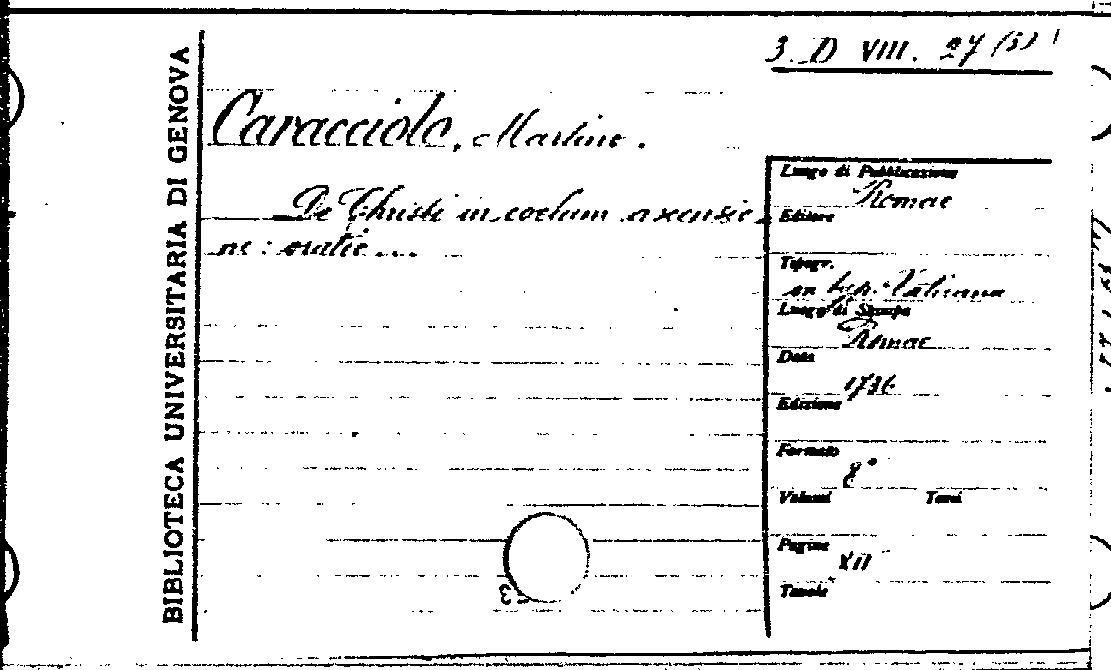 3 D VIII. 27 (5)
BIBLIOTECA UNIVERSITARIA DI GENOVA
Caracciolo, Martino.
De Christi in coelum ascensio
ne: oratio...
Luogo di Pubblicazione
Romae
Editore
Tipogr.
ex typ. Vaticana
Luogo di Stampa
Romae
Data
1736
Edizione
Formato
8°
Volumi Tomi
Pagine
XII
Tavole